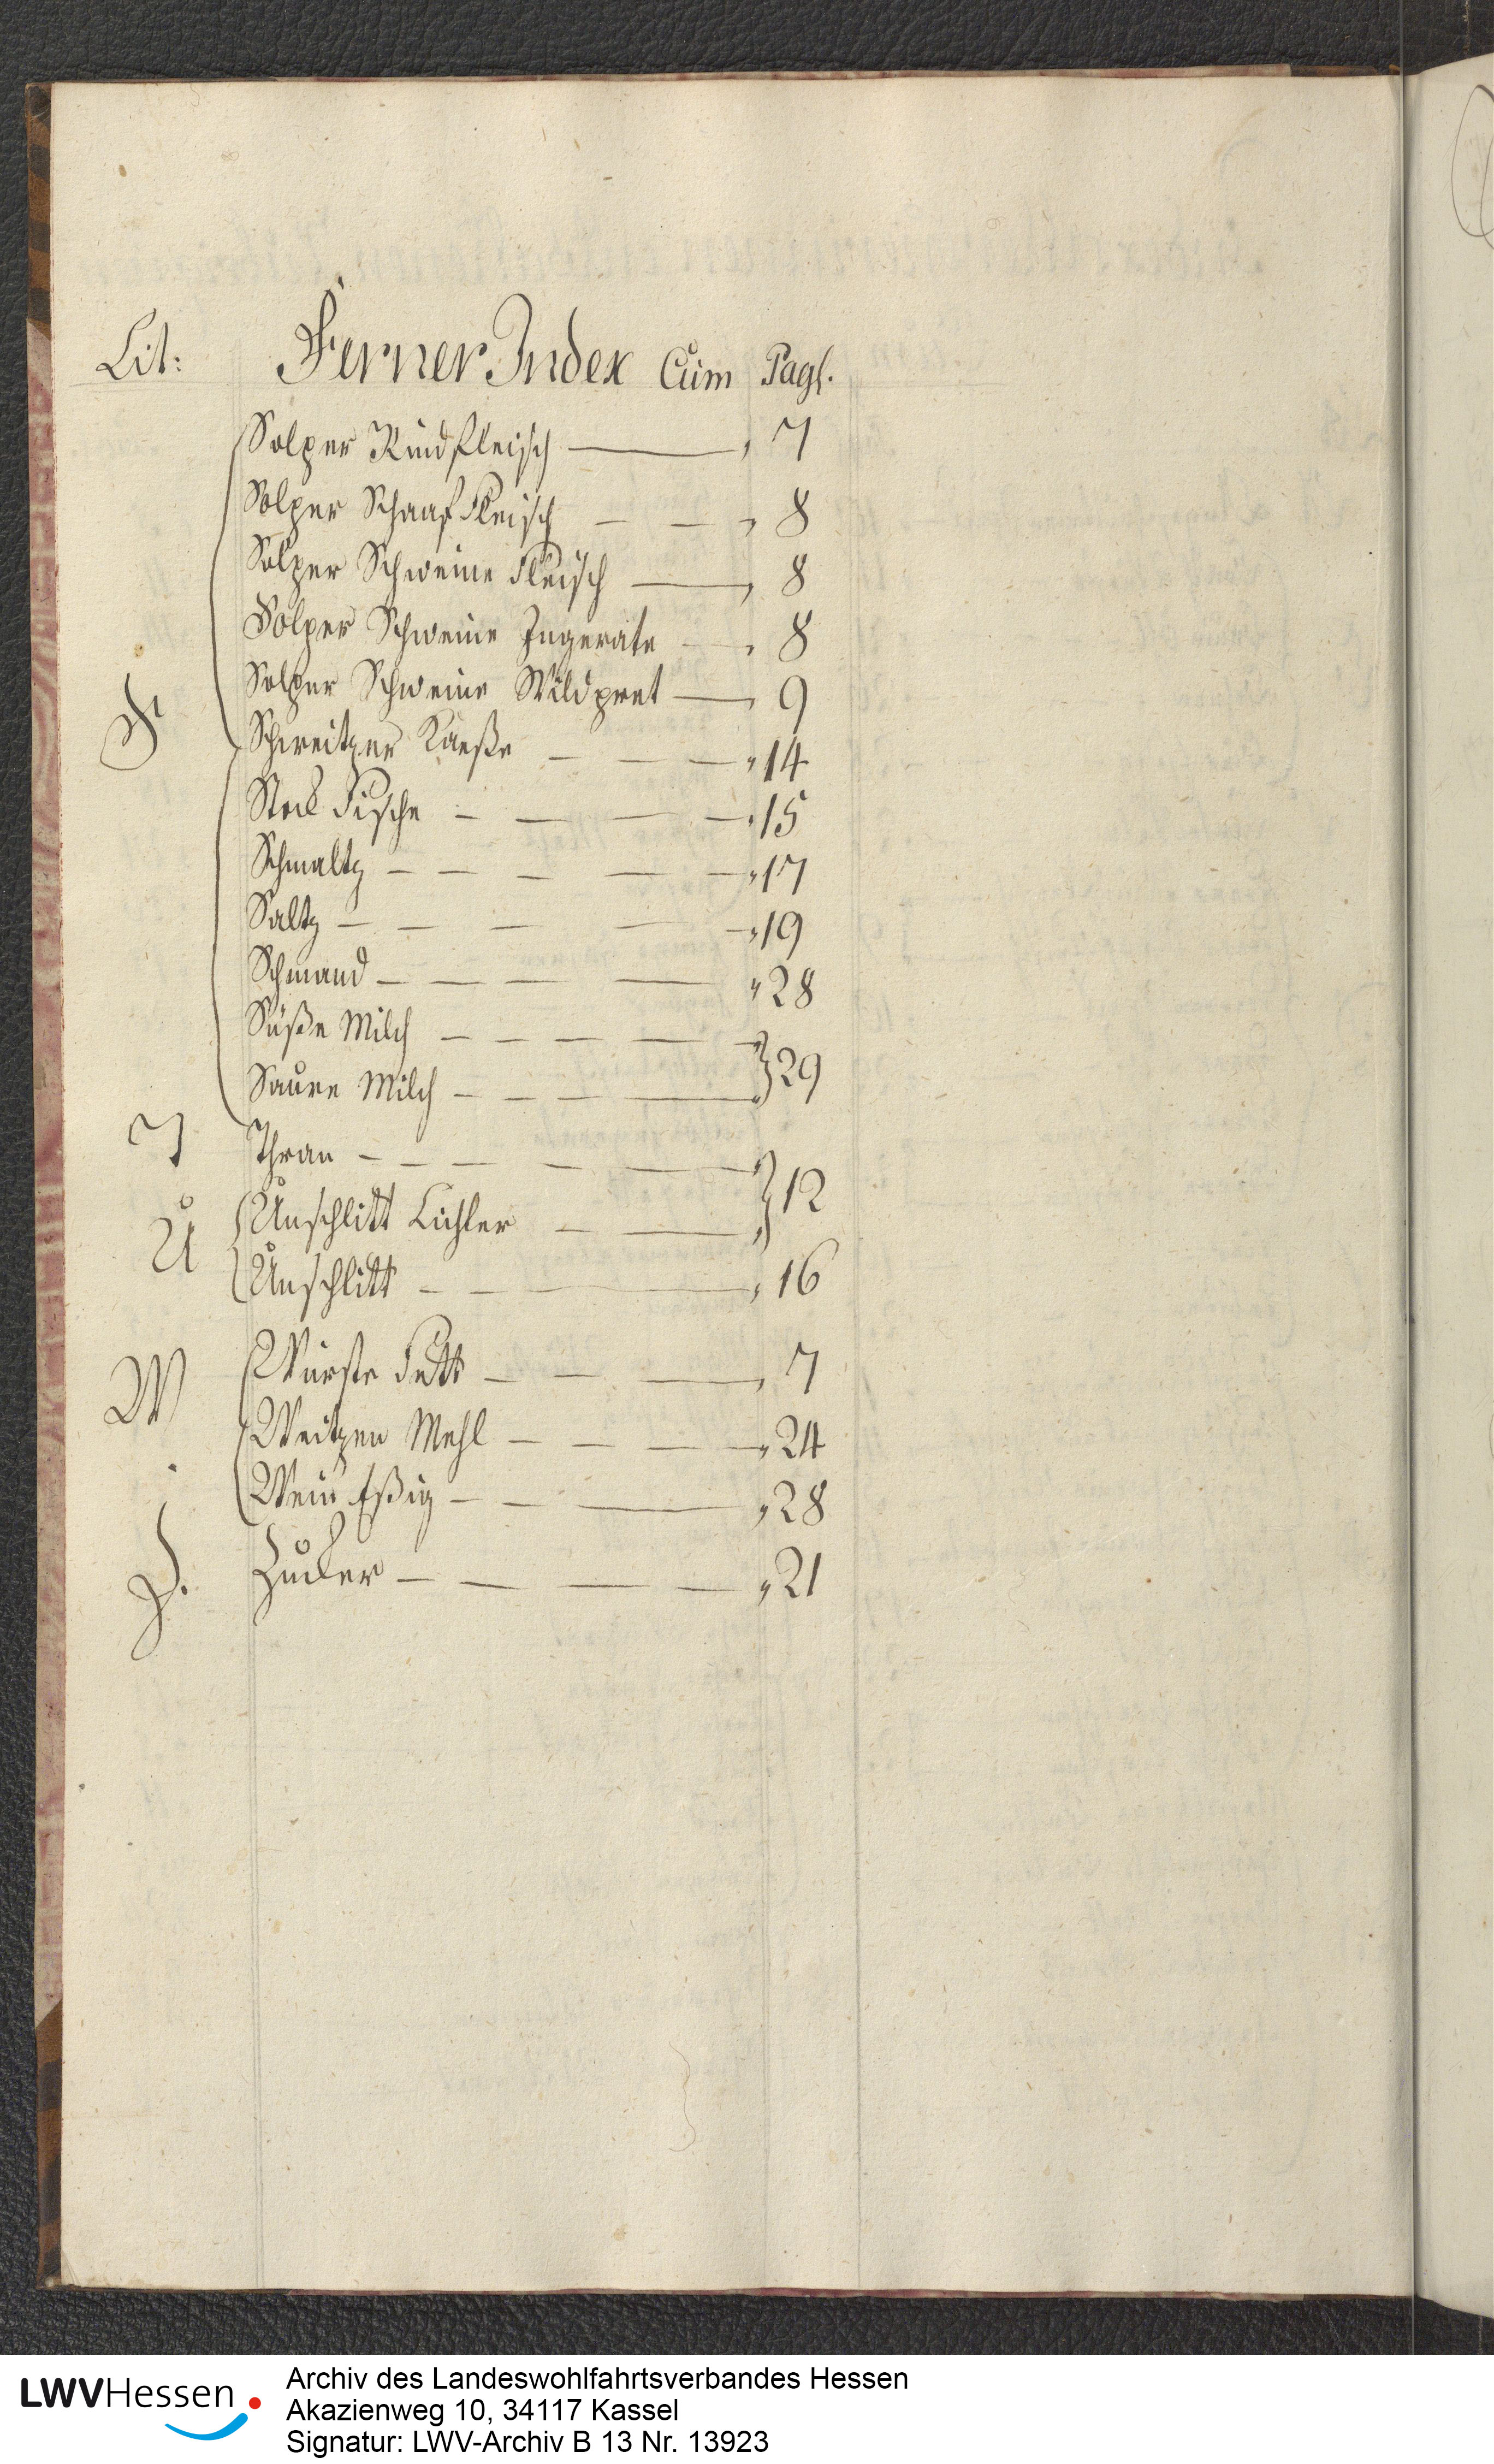 Lit: Ferner Index Cum Pag:
Solper Rindfleisch 7
Solper Schaaf Fleisch 8
Solper Schweine Fleisch 8
Solper Schweine Ingerate 8
S. Solper Schweine Wildpret 9
Schweitzer Kaeße 14
Stock Fische 15
Schmaltz 17
Saltz 19
Schmand 28
Süße Milch
29
Saure Milch
T Thran
12
U Unschlitt Lichter
Unschlitt 16
W Würste Fett 7
Weitzen Mehl 24
Wein Eßig 28
Z. Zucker 21
LWVHessen
Archiv des Landeswohlfahrtsverbandes Hessen
Akazienweg 10, 34117 Kassel
Signatur: LWV-Archiv B 13 Nr. 13923